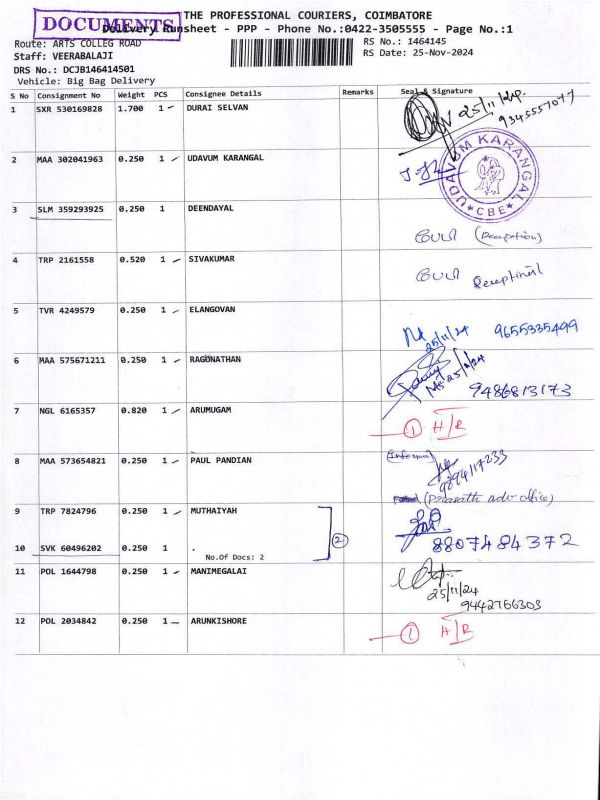 DOCUMENTS
THE PROFESSIONAL COURIERS, COIMBATORE
Delivery Runsheet - PPP - Phone No.:0422-3505555 - Page No.:1
Route: ARTS COLLEG ROAD
RS No.: 1464145
Staff: VEERABALAJI
RS Date: 25-Nov-2024
DRS No.: DCJB146414501
Vehicle: Big Bag Delivery
S No Consignment No Weight PCS Consignee Details Remarks Seal & Signature
1 SXR 530169828 1.700 1 DURAI SELVAN 25/11/24 9345557077
2 MAA 302041963 0.250 1 UDAVUM KARANGAL
UDAVUM KARANGAL * CBE *
3 SLM 359293925 0.250 1 DEENDAYAL
பேபி (Reception)
4 TRP 2161558 0.520 1 SIVAKUMAR
பேபி
5 TVR 4249579 0.250 1 ELANGOVAN
25/11/24 9655335499
6 MAA 575671211 0.250 1 RAGUNATHAN
25/11/24 9486813173
7 NGL 6165357 0.820 1 ARUMUGAM
1 A/R
8 MAA 573654821 0.250 1 PAUL PANDIAN
9894117233
office)
9 TRP 7824796 0.250 1 MUTHAIYAH
2 8807484372
10 SVK 60496202 0.250 1 .
No.Of Docs: 2
11 POL 1644798 0.250 1 MANIMEGALAI
25/11/24
9442766303
12 POL 2034842 0.250 1 ARUNKISHORE
1 A/R